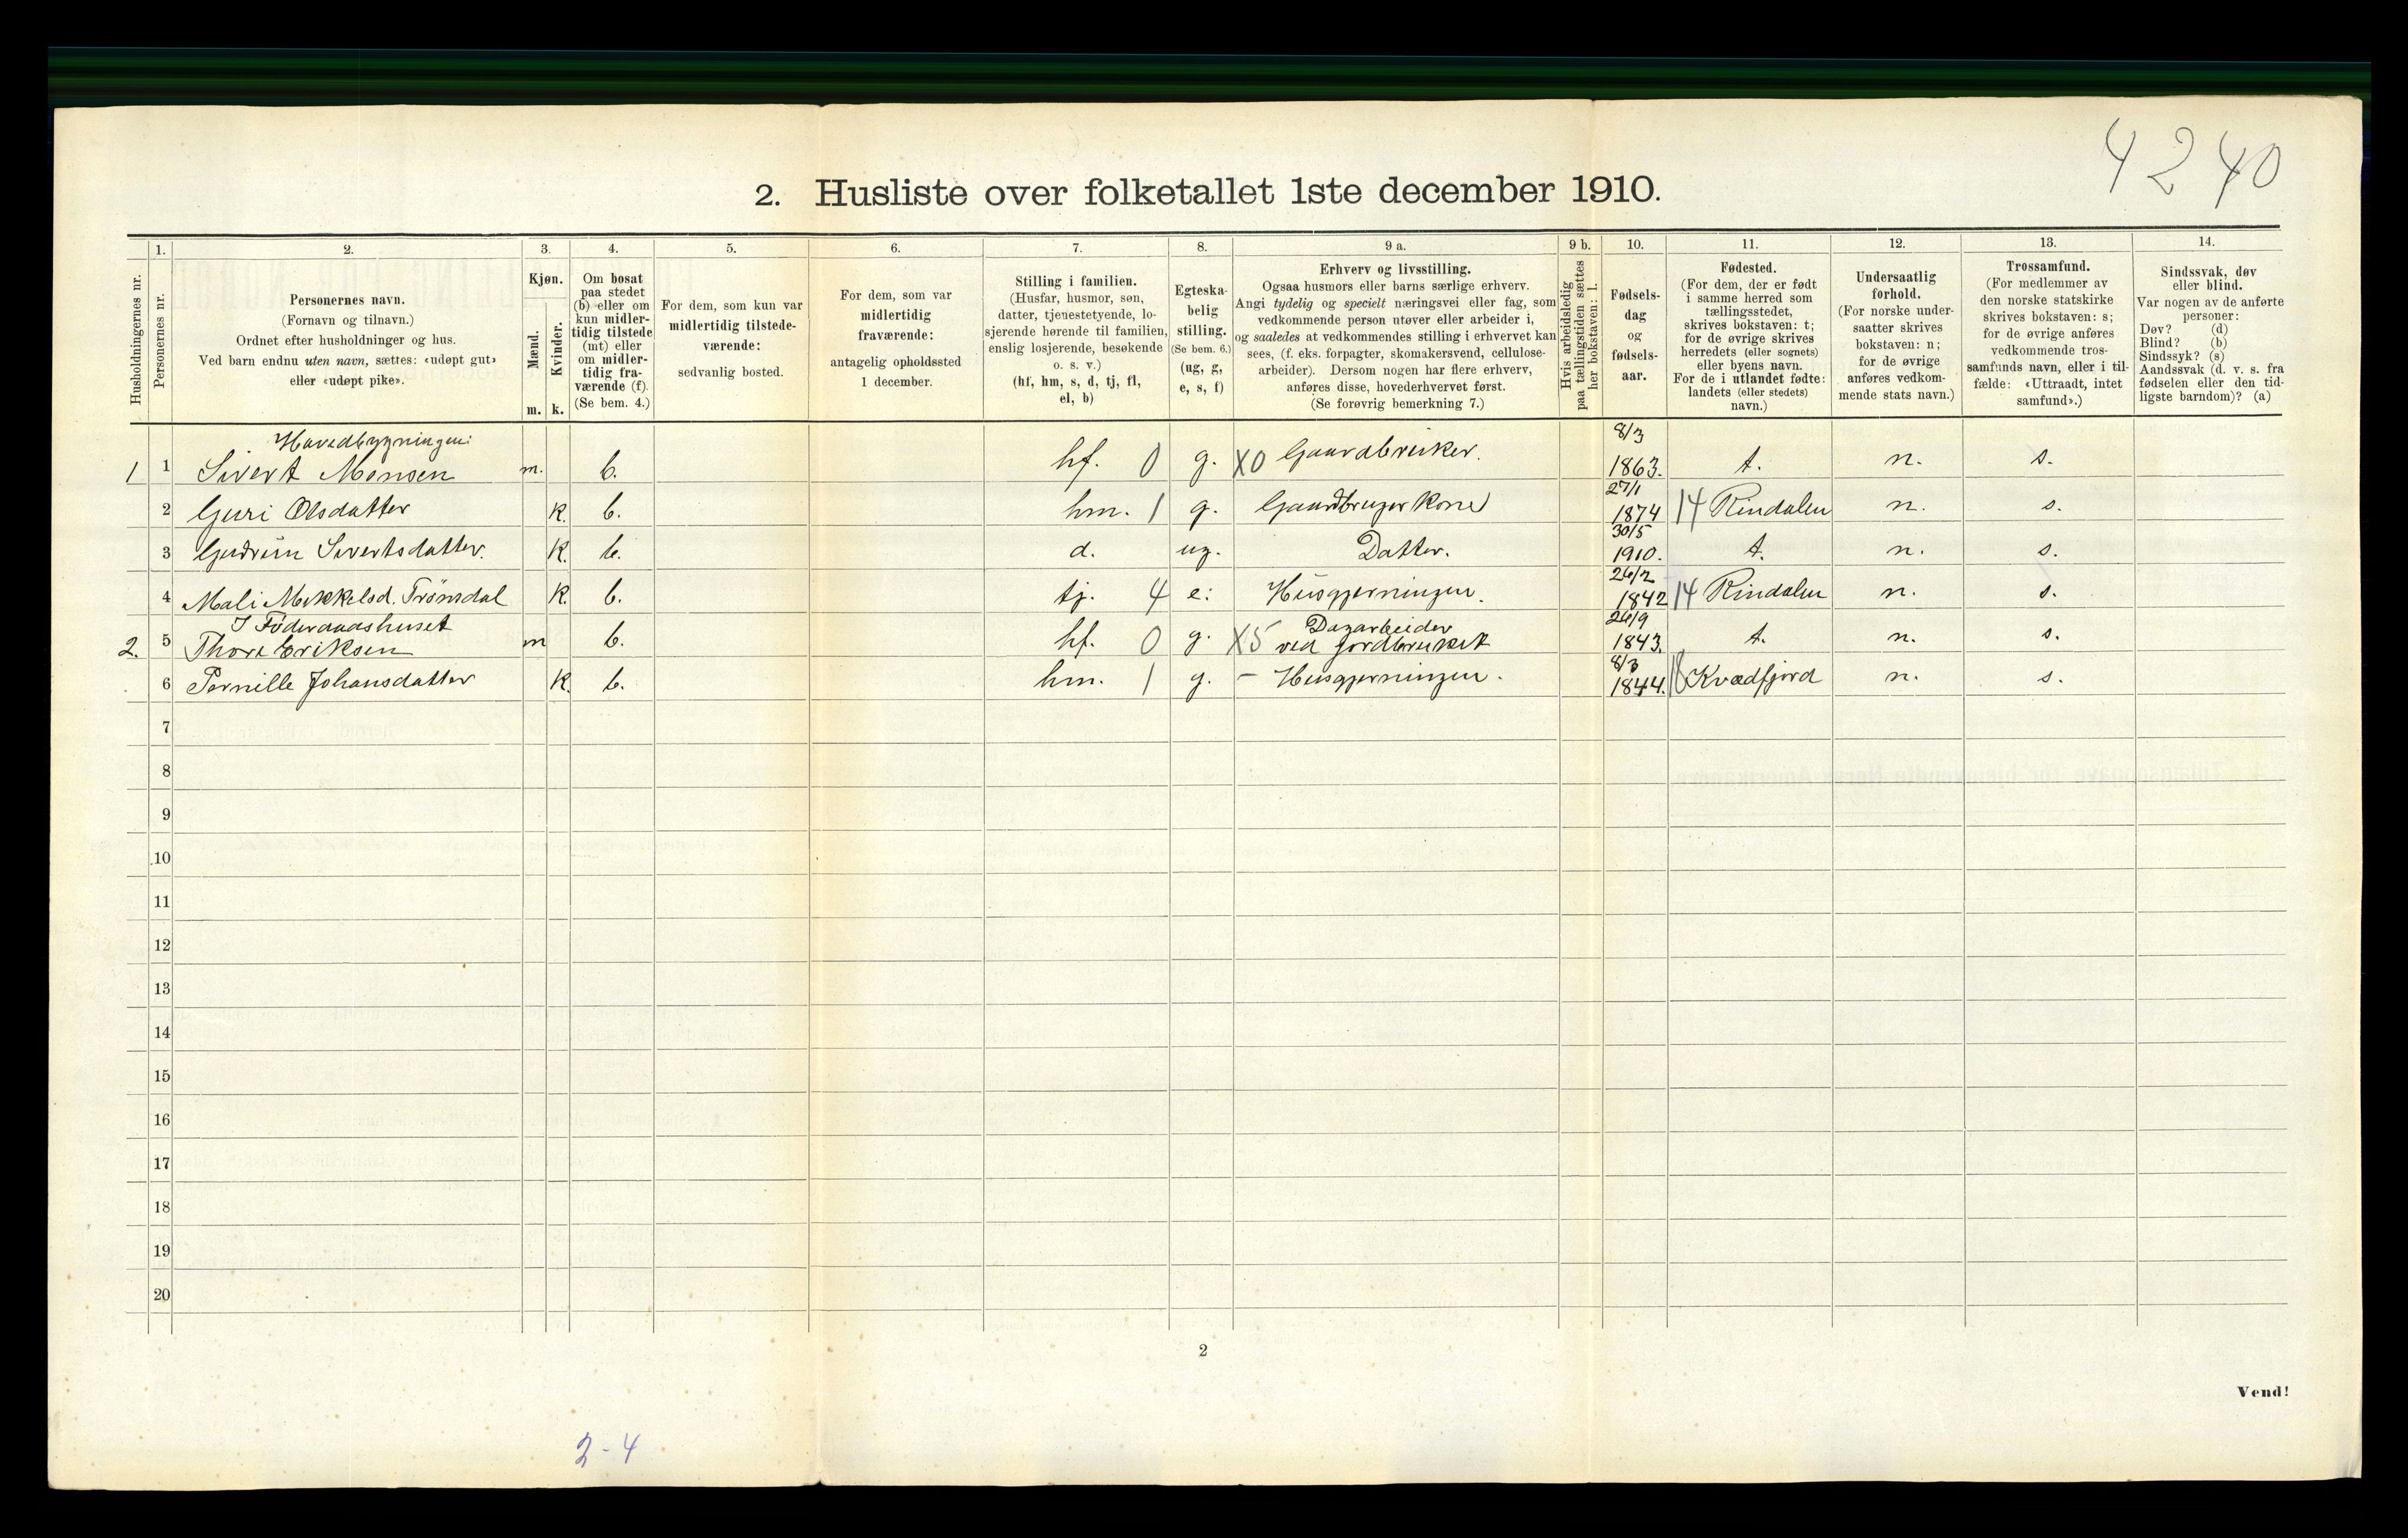 4240
2. Husliste over folketallet 1ste december 1910.
1. 2. 3. 4. 5. 6. 7. 8. 9 a. 9 b. 10. 11. 12. 13. 14.
Husholdningernes nr.
Personernes nr.
Personernes navn.
(Fornavn og tilnavn.)
Ordnet efter husholdninger og hus.
Ved barn endnu uten navn, sættes: «udøpt gut»
eller «udøpt pike».
Kjøn.
Mænd.
Kvinder.
m. k.
Om bosat
paa stedet
(b) eller om
kun midler-
tidig tilstede
(mt) eller
om midler-
tidig fra-
værende (f).
(Se bem. 4.)
For dem, som kun var
midlertidig tilstede-
værende:
sedvanlig bosted.
For dem, som var
midlertidig
fraværende:
antagelig opholdssted
1 december.
Stilling i familien.
(Husfar, husmor, søn,
datter, tjenestetyende, lo-
sjerende hørende til familien,
enslig losjerende, besøkende
o. s. v.)
(hf, hm, s, d, tj, fl,
el, b)
Egteska-
belig
stilling.
(Se bem. 6.)
(ug, g,
e, s, f)
Erhverv og livsstilling.
Ogsaa husmors eller barns særlige erhverv.
Angi tydelig og specielt næringsvei eller fag, som
vedkommende person utøver eller arbeider i,
og saaledes at vedkommendes stilling i erhvervet kan
sees, (f. eks. forpagter, skomakersvend, cellulose-
arbeider). Dersom nogen har flere erhverv,
anføres disse, hovederhvervet først.
(Se forøvrig bemerkning 7.)
Hvis arbeidsledig
paa tællingstiden sættes
her bokstaven: l.
Fødsels-
dag
og
fødsels-
aar.
Fødested.
(For dem, der er født
i samme herred som
tællingsstedet,
skrives bokstaven: t;
for de øvrige skrives
herredets (eller sognets)
eller byens navn.
For de i utlandet fødte:
landets (eller stedets)
navn.)
Undersaatlig
forhold.
(For norske under-
saatter skrives
bokstaven: n;
for de øvrige
anføres vedkom-
mende stats navn.)
Trossamfund.
(For medlemmer av
den norske statskirke
skrives bokstaven: s;
for de øvrige anføres
vedkommende tros-
samfunds navn, eller i til-
fælde: «Uttraadt, intet
samfund».)
Sindssvak, døv
eller blind.
Var nogen av de anførte
personer:
Døv? (d)
Blind? (b)
Sindssyk? (s)
Aandssvak (d. v. s. fra
fødselen eller den tid-
ligste barndom)? (a)
Hovedbygningen:
1 1 Sivert Monsen m. b. hf. 0 g. X0 Gaardbruker. 8/3 1863. t. n. s.
2 Guri Olsdatter k. b. hm. 1 g. Gaardbruger kone 27/1 1874 14 Rindalen n. s.
3 Gudrun Sivertsdatter. k. b. d. ug. Datter. 30/5 1910. t. n. s.
4 Mali Mikkelsd. Trönsdal k. b. tj. 4 e: Husgjerningen. 26/2 1842 14 Rindalen n. s.
I Föderaadshuset
2. 5 Thore Eriksen m b. hf. 0 g. X5 Dagarbeider ved jordbruket 26/9 1843. t. n. s.
6 Pernille Johansdatter k. b. hm. 1 g. – Husgjerningen. 8/3 1844. 18 Kvædfjord n. s.
7
8
9
10
11
12
13
14
15
16
17
18
19
20
2
Vend!
2-4